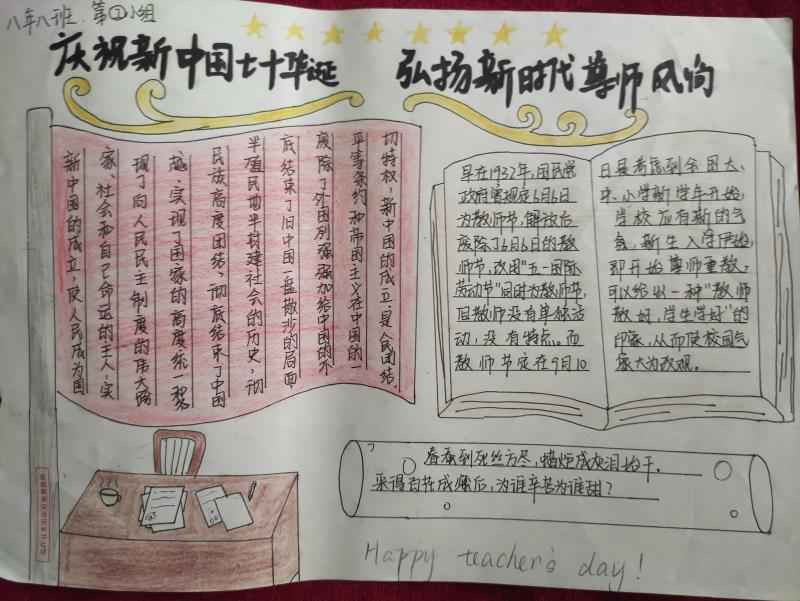 八年八班.第①小组
庆祝新中国七十华诞 弘扬新时代尊师风尚
新中国的成立,使人民成为国
家、社会和自己命运的主人,实
现了向人民民主制度的伟大跨
越,实现了国家的高度统
民族高度团结、彻底结束了中国
半殖民地半封建社会的历史,彻
底结束了旧中国一盘散沙的局面,
废除了外国列强强加给中国的不
平等条约和帝国主义在中国的一
切特权,新中国的成立,是人民团结,
早在1932年,国民党
政府曾规定6月6日
为教师节,解放后
废除了6月6日的教
师节,改用"五一国际
劳动节"同时为教师节,
但教师没有单独活
动,没有特点。而
教师节定在9月10
日是考虑到全国大、
中、小学新学年开始,
学校应有新的气
象,新生入学伊始,
即开始尊师重教,
可以给以一种"教师
教好,学生学好"的
印象,从而使校园气
象大为改观。
春蚕到死丝方尽,蜡炬成灰泪始干。
采得百花成蜜后,为谁辛苦为谁甜?
Happy teacher's day!